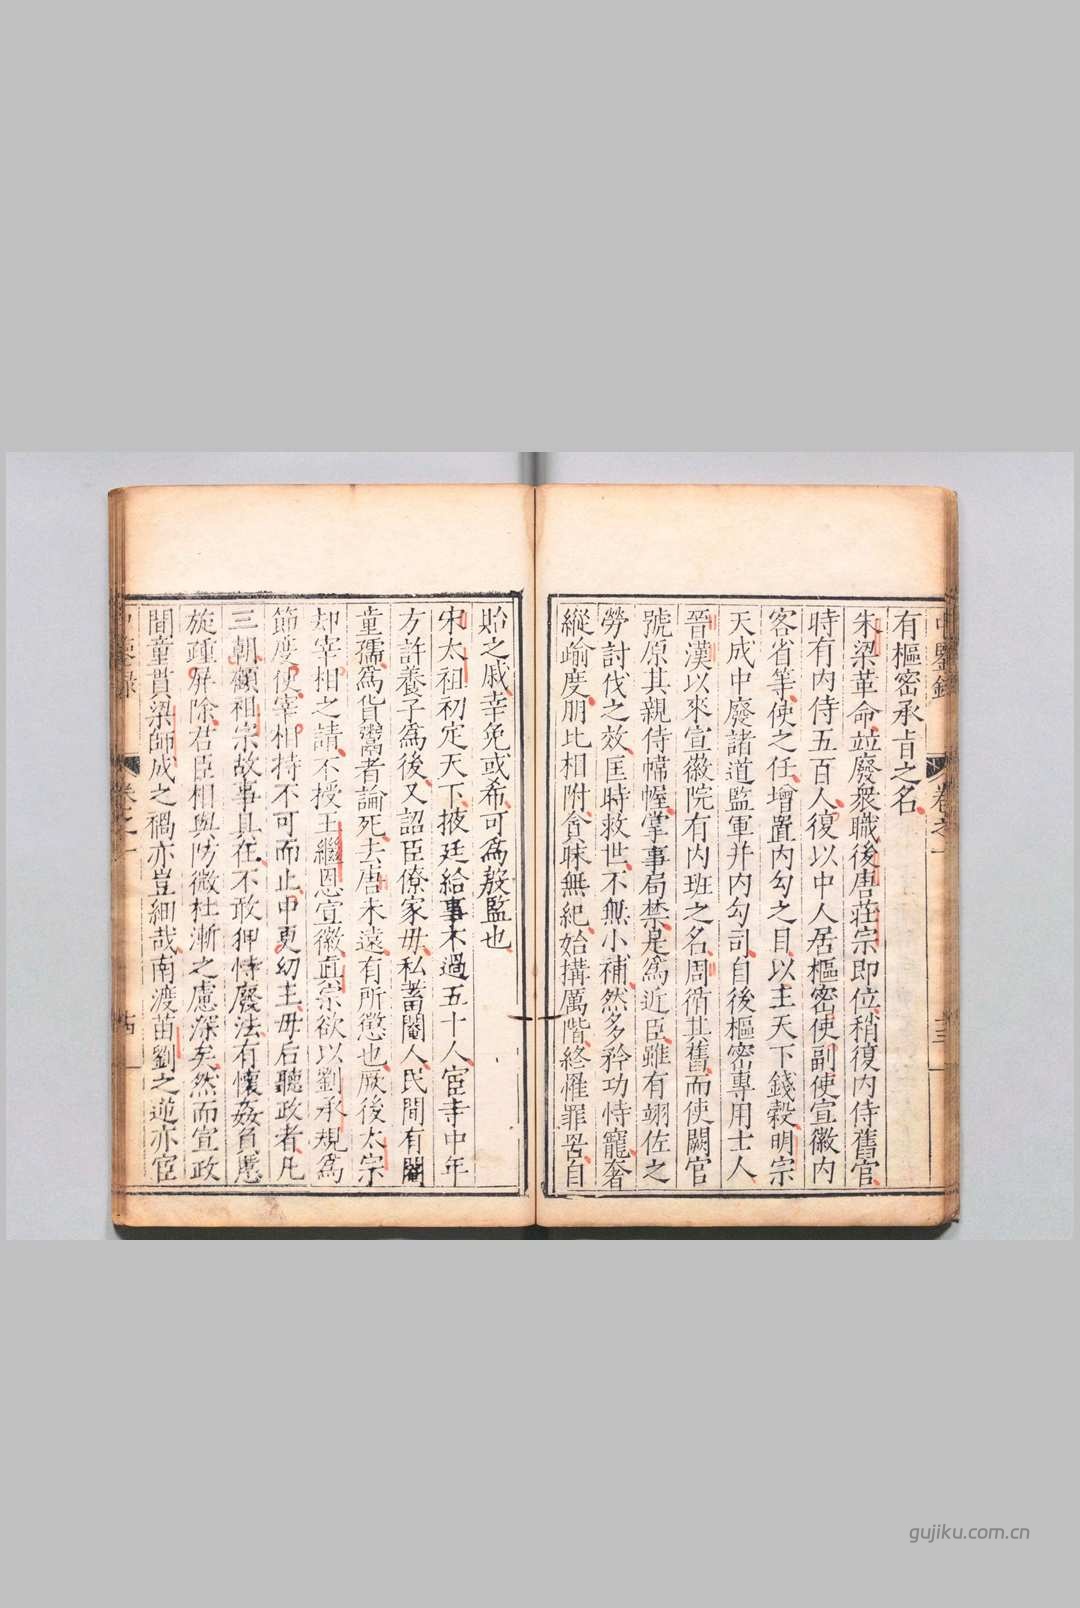 有樞密承旨之名
朱梁革命竝廢衆職後唐莊宗即位稍復內侍舊官
時有內侍五百人復以中人居樞密使副使宣徽內
客省等使之任增置內勾之目以主天下錢穀明宗
天成中廢諸道監軍并內勾司自後樞密專用士人
晉漢以來宣徽院有內班之名周循其舊而使闕官
號原其親侍幃幄掌事局禁是爲近臣雖有翊佐之
勞討伐之效匡時救世不無小補然多矜功恃寵奢
縱踰度朋比相附貪昧無紀始搆厲階終罹罪罟自
中鑒錄 卷之一 十三
貽之戚幸免或希可爲殷監也
宋太祖初定天下掖廷給事不過五十人宦寺中年
方許養子爲後又詔臣僚家毋私蓄閹人民間有閹
童孺爲貨鬻者論死去唐未遠有所懲也厥後太宗
却宰相之請不授王繼恩宣徽真宗欲以劉承規爲
節度使宰相持不可而止中更幼主毋后聽政者凡
三朝顧祖宗故事具在不敢狎恃廢法有懷姦負慝
旋踵屏除君臣相與防微杜漸之慮深矣然而宣政
間童貫梁師成之禍亦豈細哉南渡苗劉之逆亦宦
中鑒錄 卷之一 十四
gujiku.com.cn